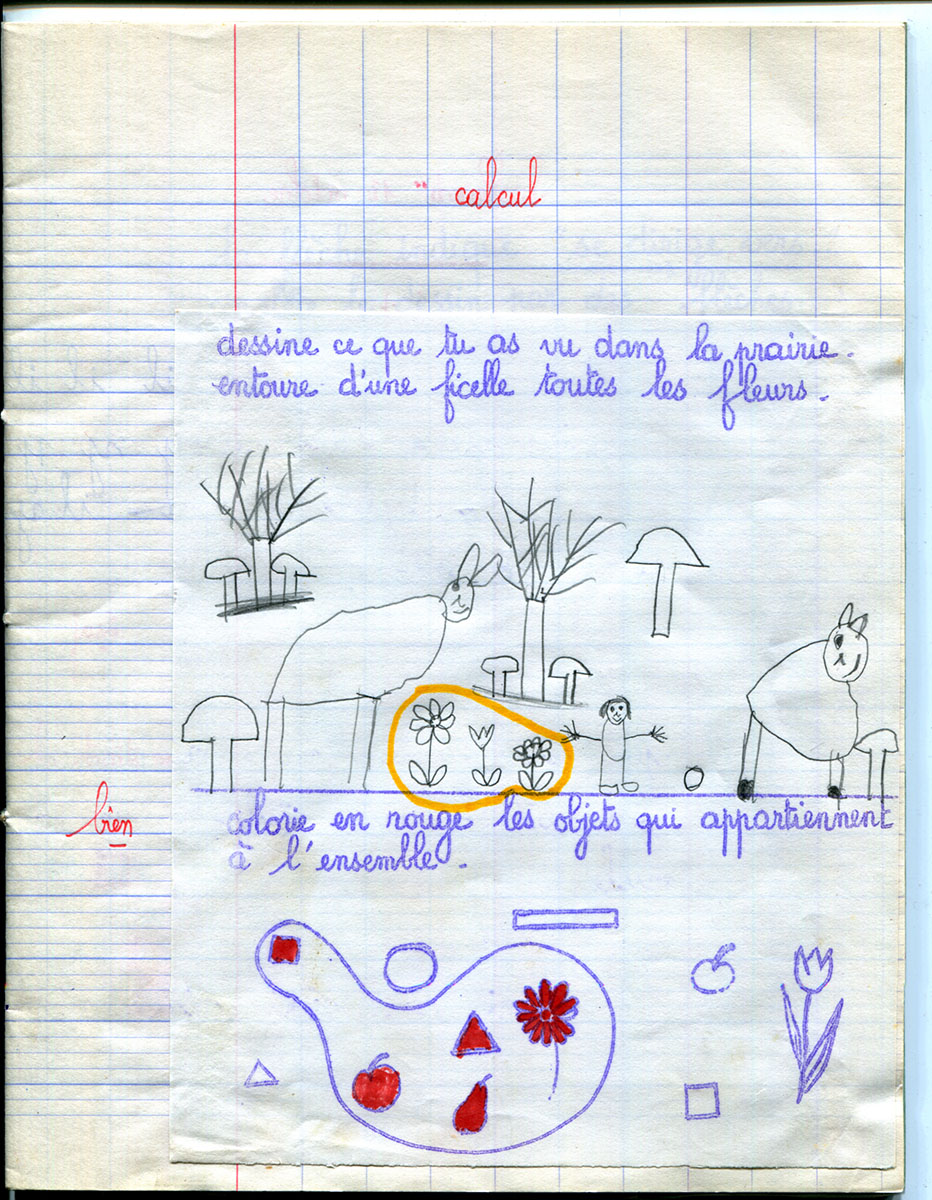 calcul
dessine ce que tu as vu dans la prairie.
entoure d'une ficelle toutes les fleurs.
bien
colorie en rouge les objets qui appartiennent
à l'ensemble.